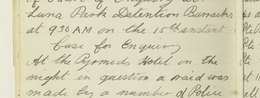 Luna Park Detention Barracks
at 9.30 AM on the 15th instant
Case for Enquiry
At the Pyramids Hotel on the
night in question a raid was
made by a number of Police